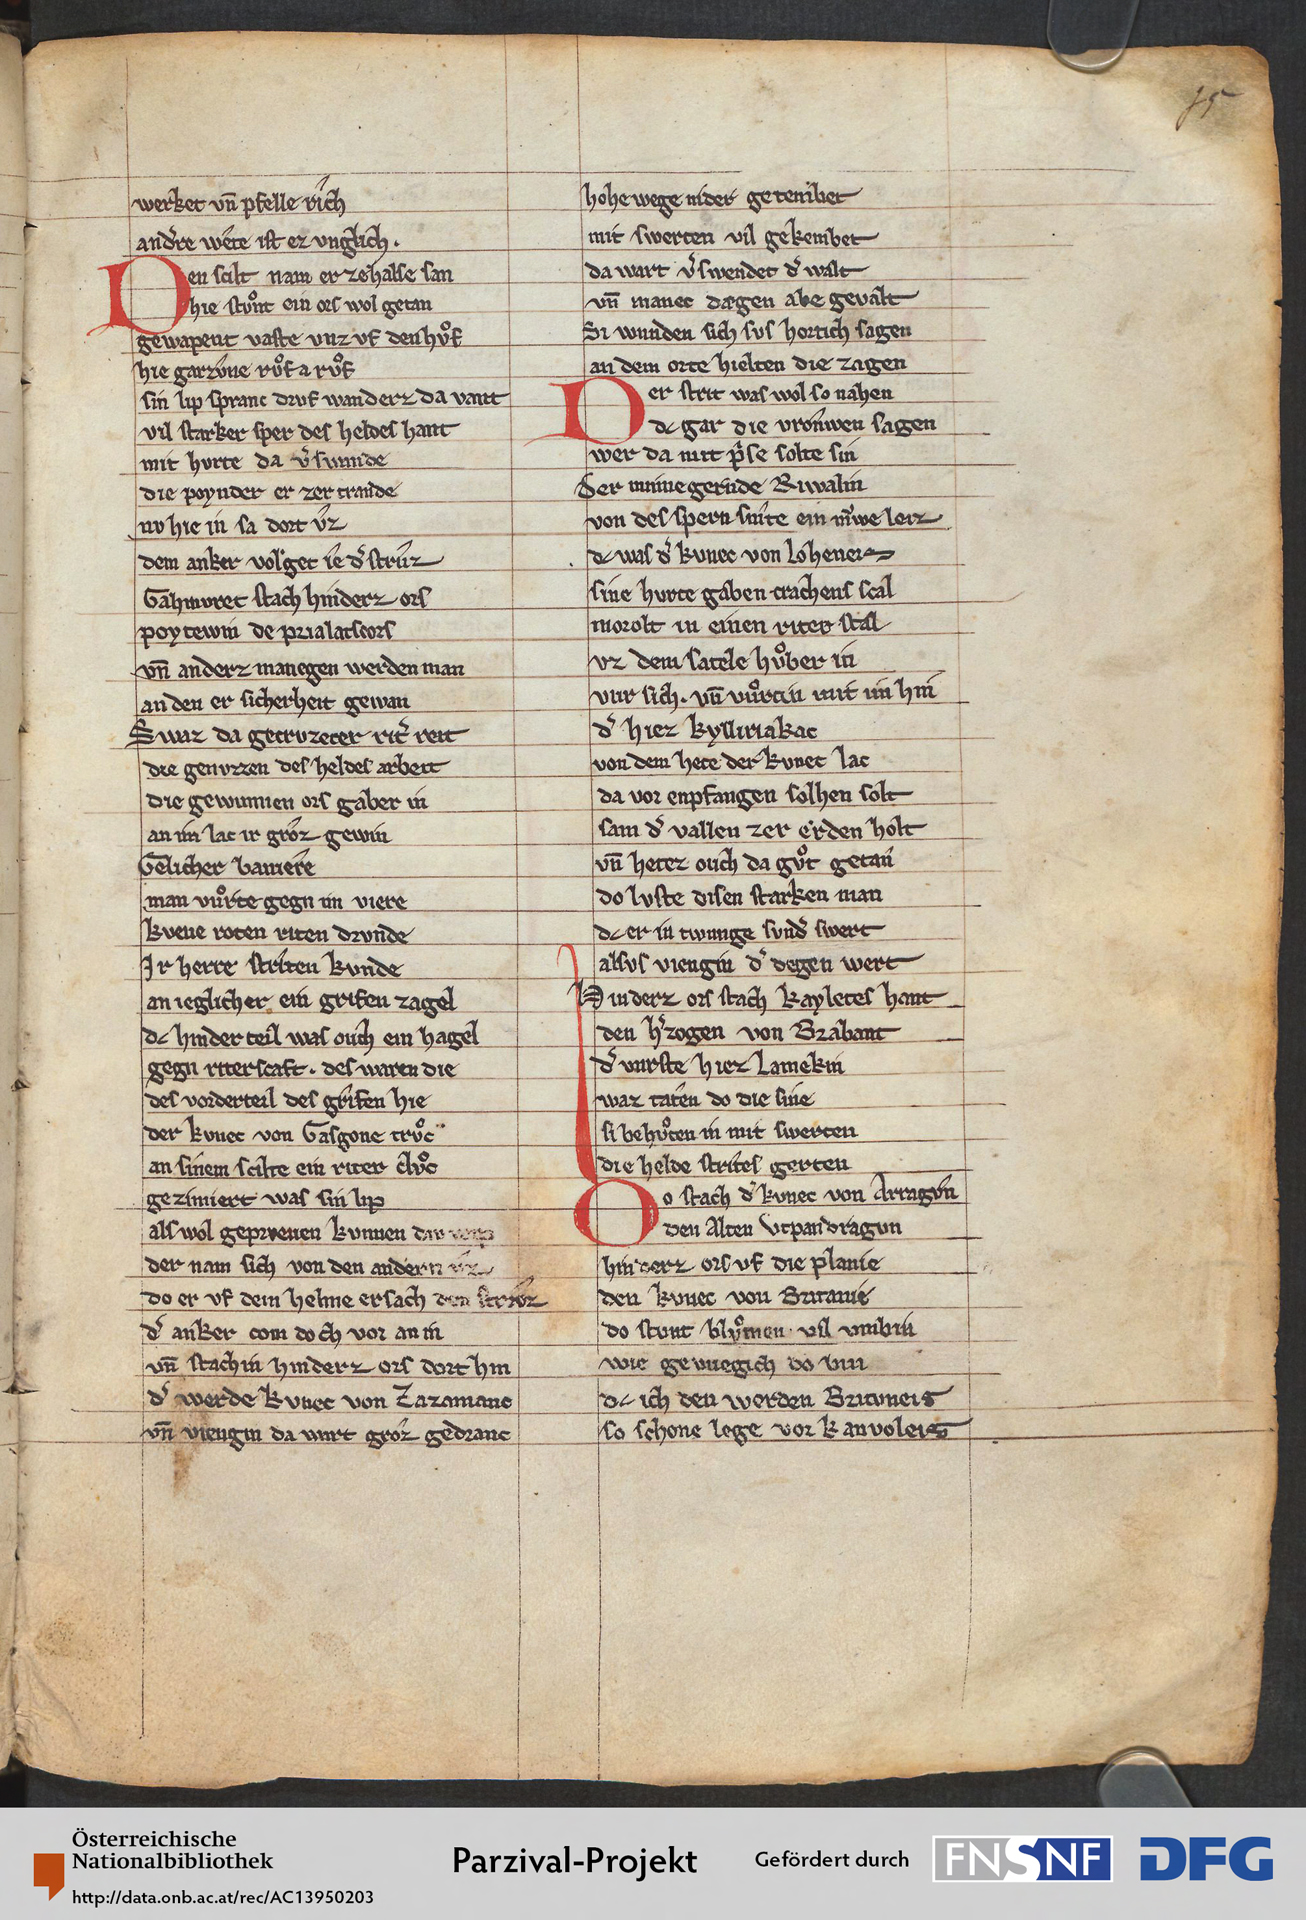 15
werket vn̄ pfelle rich
andͤre wete ist ez vnglich.
Den scilt nam er zehalse san
hie stvͦnt ein ors wol getan
gewapent vaste vnz vf den hvͦf
hie garzvne rvͦf a rvͦf
sin lip spranc drvf wanderz da vant
vil starker sper des heldes hant
mit hvrte da v̓swande
die poynder er zertrande
nv hie in sa dort vz
dem anker volget ie d̓ strvz
Gahmvret stach hinderz ors
poytewin de prialatscors
vn̄ anderz manegen werden man
an den er sicherheit gewan
Swaz da gecruzeter rit̓ reit
die genvzzen des heldes arbeit
die gewunnen ors gaber in
an im lac ir groz gewin
Gelicher baniere
man vuͦrte gegn im viere
kvene roten riten drvnde
Ir herre striten kvnde
an ieglicher ein grifen zagel
dc hinder teil was ouch ein hagel
gegn riterscaft. des waren die
des vorderteil des grifen hie
der kvnec von Gasgone trvͦc
an sinem scilte ein riter clvͦc
gezimiert was sin lip
als wol geprvenen kvnnen div wip
der nam sich von den andern vz
do er vf dem helme ersach den strvz
d̓ anker com doch vor an in
vn̄ stach in hinderz ors dort hin
d̓ werde kvnec von Zazamanc
vn̄ viengin da wart groz gedranc
hohe wege nider getenibet
mit swerten vil gekembet
da wart v̓swendet d̓ walt
vn̄ manec degen abe gevalt
Si wunden sich svs hortich sagen
an dem orte hielten die zagen
Der strit was wol so nahen
dc gar die vrouwen sagen
wer da mit p̓se solte sin
der minne gernde Riwalin
von des spern snite ein niwe leiz
dc was d̓ kvnec von Loheneis
sine hvrte gaben crachens scal
morolt in einen riter stal
vz dem satele hvͦber in
vur sich. vn̄ vuͦrtin mit im hin
d̓ hiez kylliriakac
von dem hete der kvnec lac
da vor enpfangen solhen solt
sam d̓ vallen zer erden holt
vn̄ hetez ouch da gvͦt getan
do lvste disen starken man
dc er in twunge svnd̓ swert
alsvs viengin d̓ degen wert
Hinderz ors stach kayletes hant
den h̓zogen von Brabant
d̓ vurste hiez Lamekin
waz taten do die sine
si behvͦten in mit swerten
die helde strites gerten
Do stach d̓ kvnec von Arragvn
den Alten Vtpandragvn
hinderz ors vf die planie
den kvnec von Britanie
do stvnt blvͦmen vil vmbin
wie gevuegich do bin
dc ich den werden Britvneis
so schone lege vor kanvoleis
Österreichische
Nationalbibliothek
http://data.onb.ac.at/rec/AC13950203
Parzival-Projekt
Gefördert durch
FNSNF
DFG